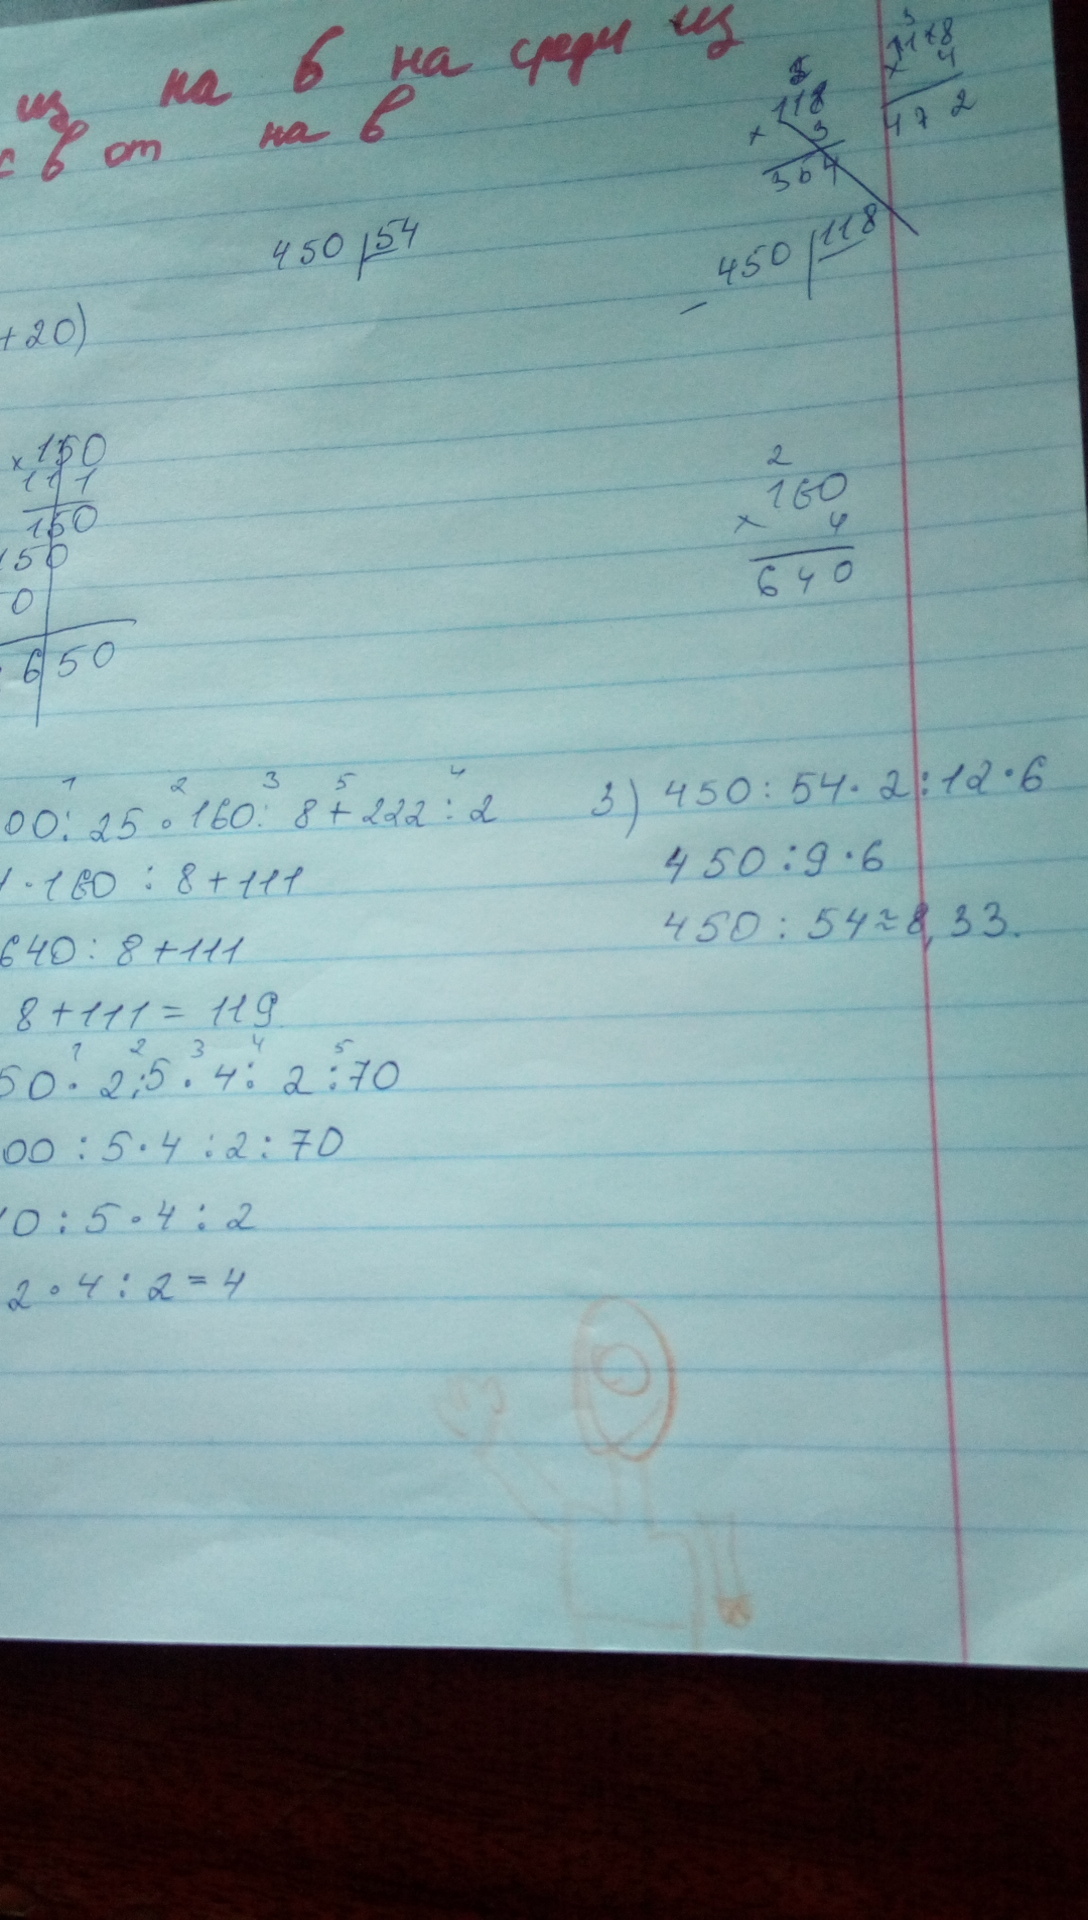 из на в на среди из
с в от на в
3
118
× 3
364
3
1178
× 4
472
450 54
- 450 118
+20)
× 150
111
150
150
0
650
2
160
× 4
640
1 2 3 5 4
00 : 25 · 160 : 8 + 222 : 2
· 160 : 8 + 111
640 : 8 + 111
8 + 111 = 119
1 2 3 4 5
50 · 2 : 5 · 4 : 2 : 70
00 : 5 · 4 : 2 : 70
10 : 5 · 4 : 2
2 · 4 : 2 = 4
3) 450 : 54 · 2 : 12 · 6
450 : 9 · 6
450 : 54 ≈ 8,33.